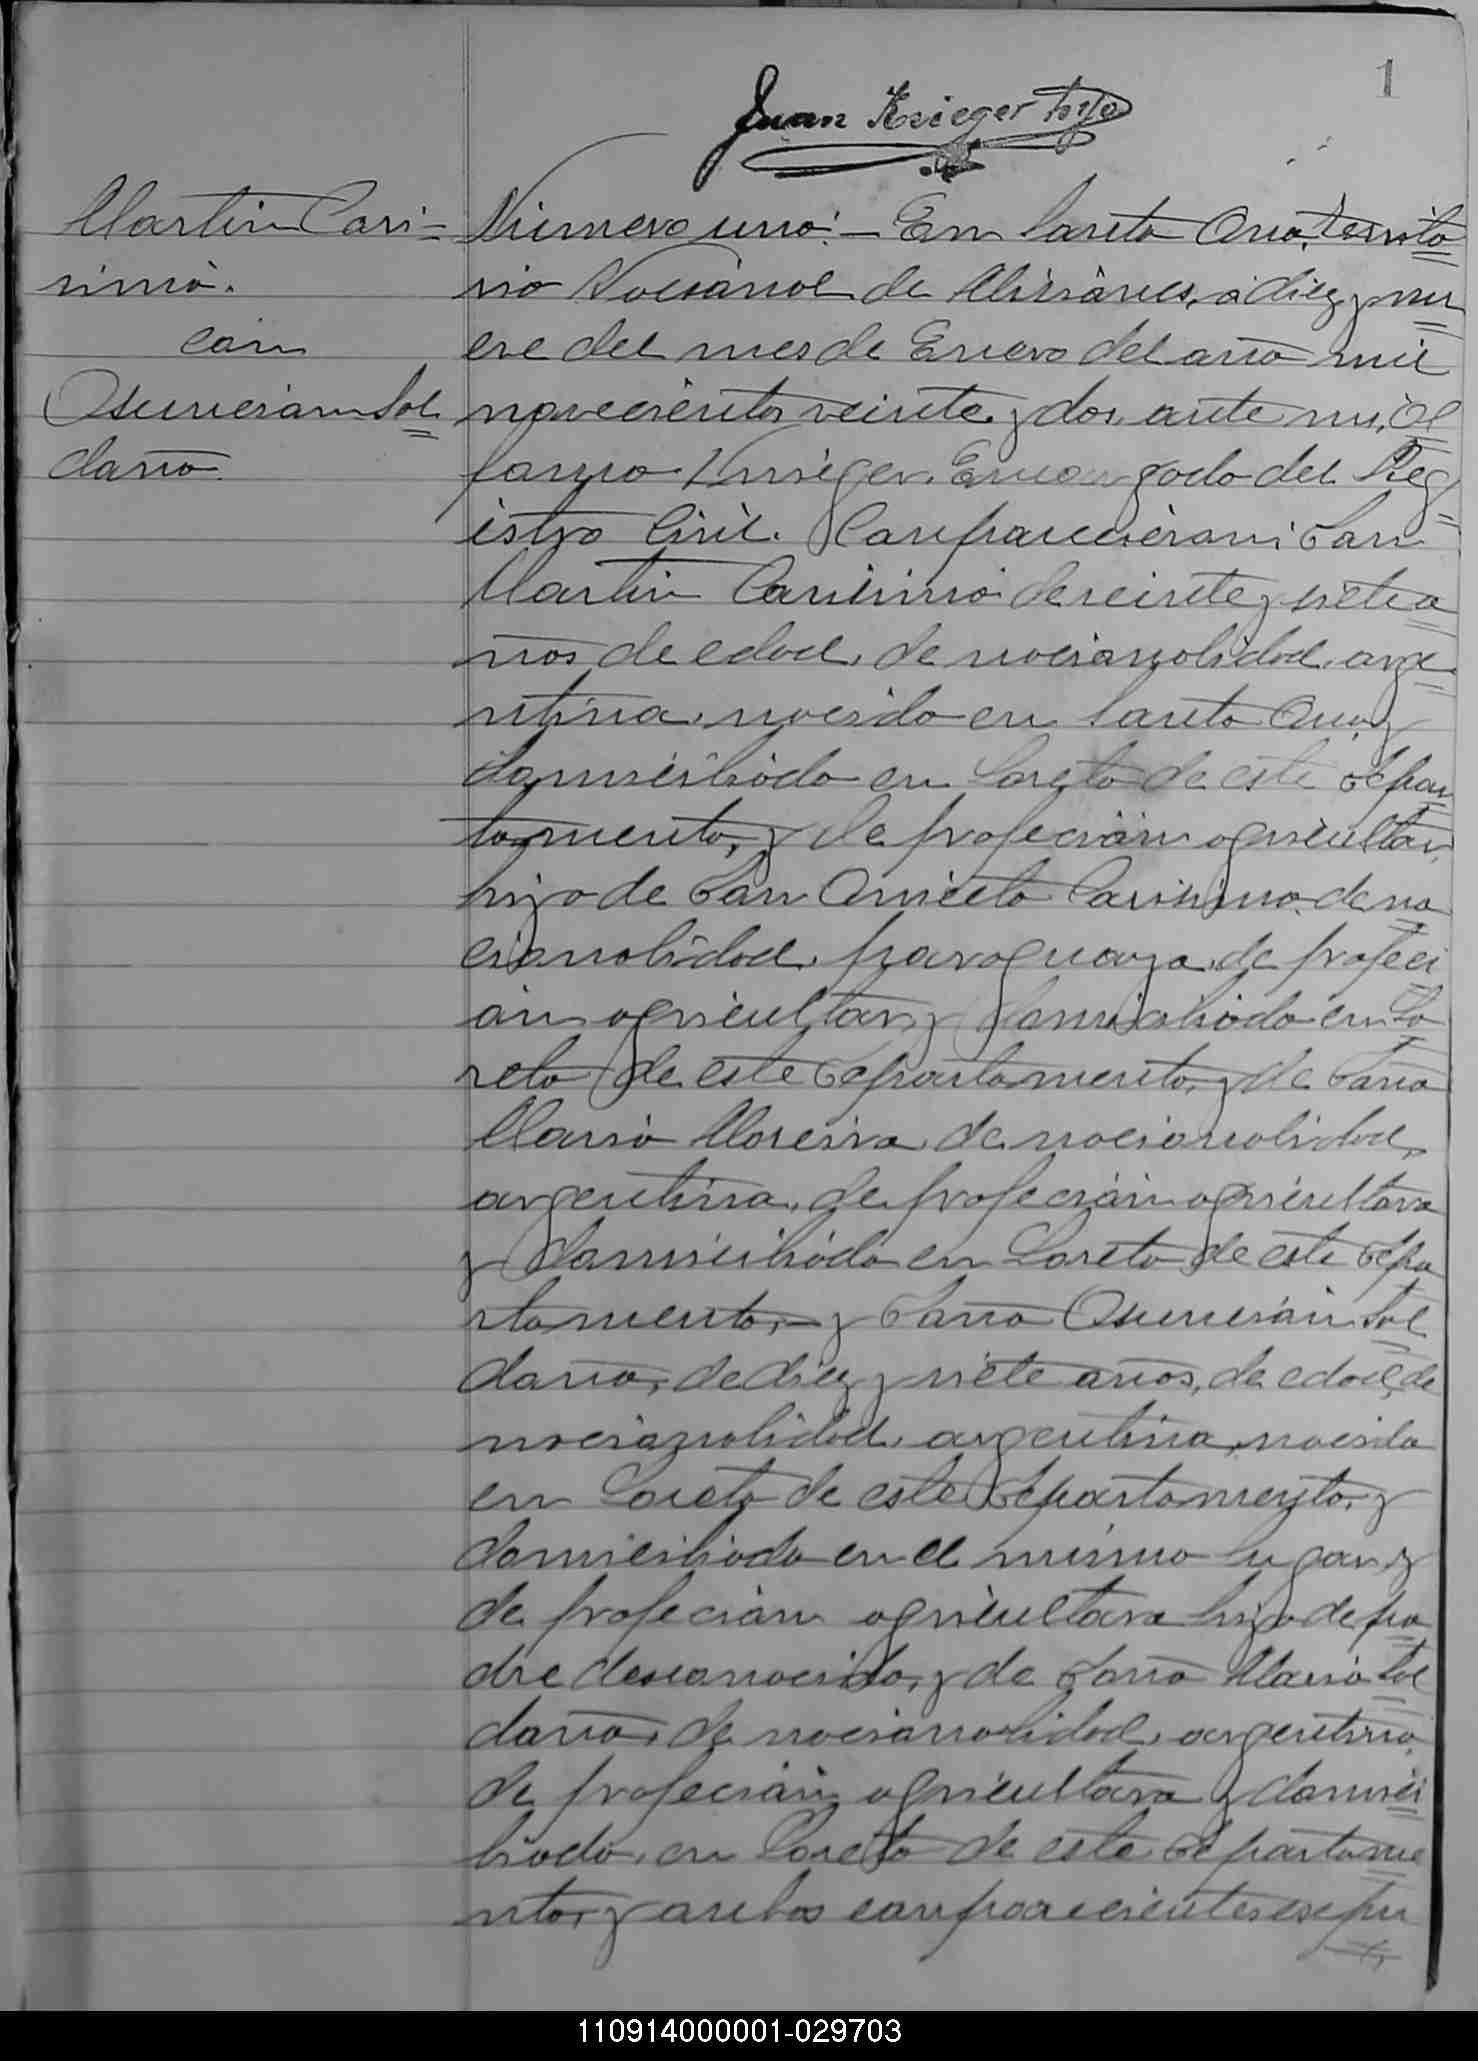 1
Juan Krieger hijo
Martin Cari=
simo.
con
Asuncion Sol=
dano.
Número uno:- En Santa Ana, Territo=
rio Nacional de Misiones, a diez y nu=
eve del mes de Enero del año mil
novecientos veinte y dos, ante mi, Ol=
Krieger, Encargado del Reg=
istro Civil. Comparecieron: Don
Martin Carisimo de veinte y siete a=
ños de edad, de nacionalidad arge=
ntina, nacido en Santa Ana, y
domiciliado en Loreto de este Depar=
tamento, y de profeción agricultor,
hijo de Don Aniceto Carisimo, de na=
cionalidad, paraguaya, de profeci
ón agricultor, y domiciliado en Lo=
reto de este Departamento, y de Doña
Maria Moreira, de nacionalidad,
argentina, de profecion agricultora
y domiciliada en Loreto de este Depa
rtamento, y Doña Asunción Sol=
dano, de diez y siete años, de edad, de
nacionalidad, argentina, nacida
en Loreto de este Departamento, y
domiciliada en el mismo lugar, y
de profecion agricultora hija de pa=
dre desconocido, y de Doña Maria Sol=
dano, de nacionalidad, argentina
de profecion agricultora y domici=
liada, en Loreto de este Departame=
nto, y ambos comparecientes espu=
110914000001-029703